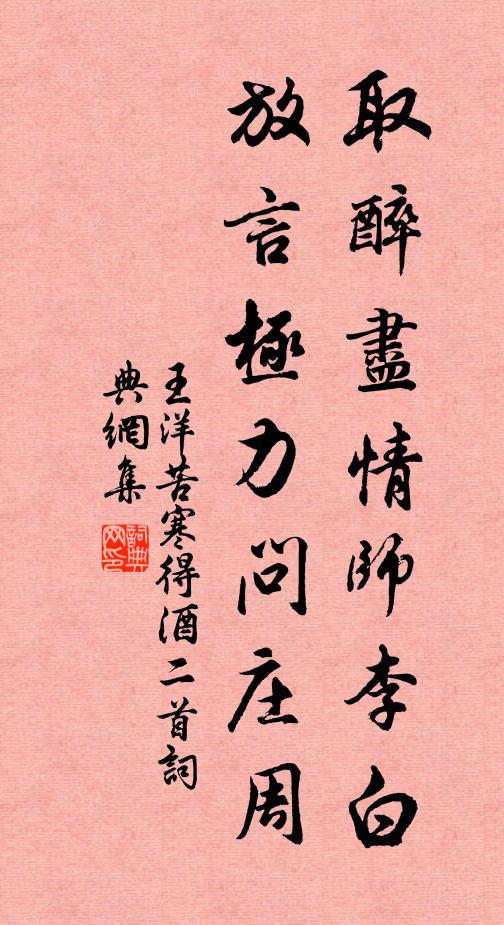 取醉盡情師李白
放言極力問庄周
王洋苦寒得酒二首詞
典網集
詞典
网印